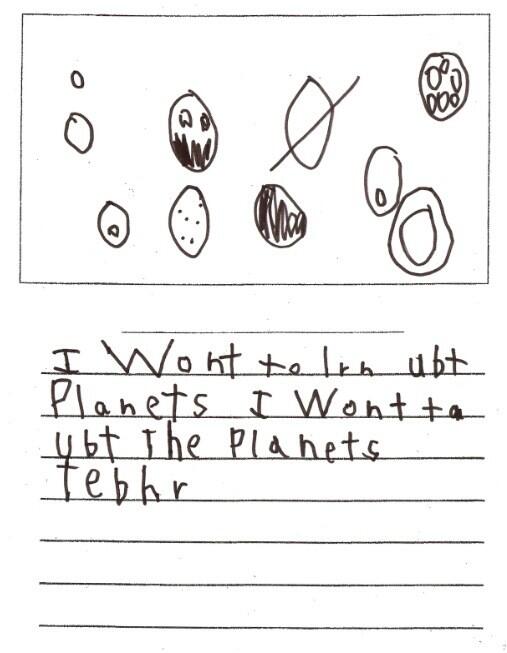 I Wont to lrn ubt
Planets I Wont ta
ubt The Planets
Tebhr